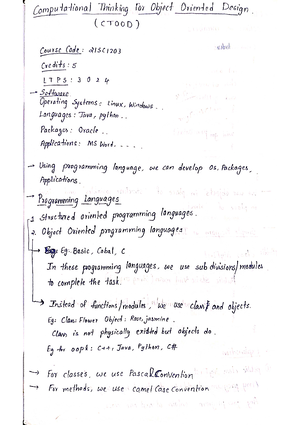 Computational Thinking for Object Oriented Design.
(CTOOD)
Course Code: 21SC1203
Credits: 5
L T P S: 3 0 2 4
→ Software
Operating Systems: Linux, Windows..
Languages: Java, python..
Packages: Oracle..
Applications: MS Word.....
→ Using programming language, we can develop OS, Packages,
Applications.
→ Programming languages
1. Structured oriented programming languages.
2. Object Oriented programming languages
Eg: Basic, Cobal, C.
In these programming languages, we use sub divisions/modules
to complete the task.
→ Instead of functions/modules, we use class and objects.
Eg: Class: Flower Object: Rose, jasmine.
Class is not physically existed but objects do.
Eg for oopl: C++, Java, Python, C#.
→ For classes, we use Pascal Convention
→ For methods, we use camel Case Convention